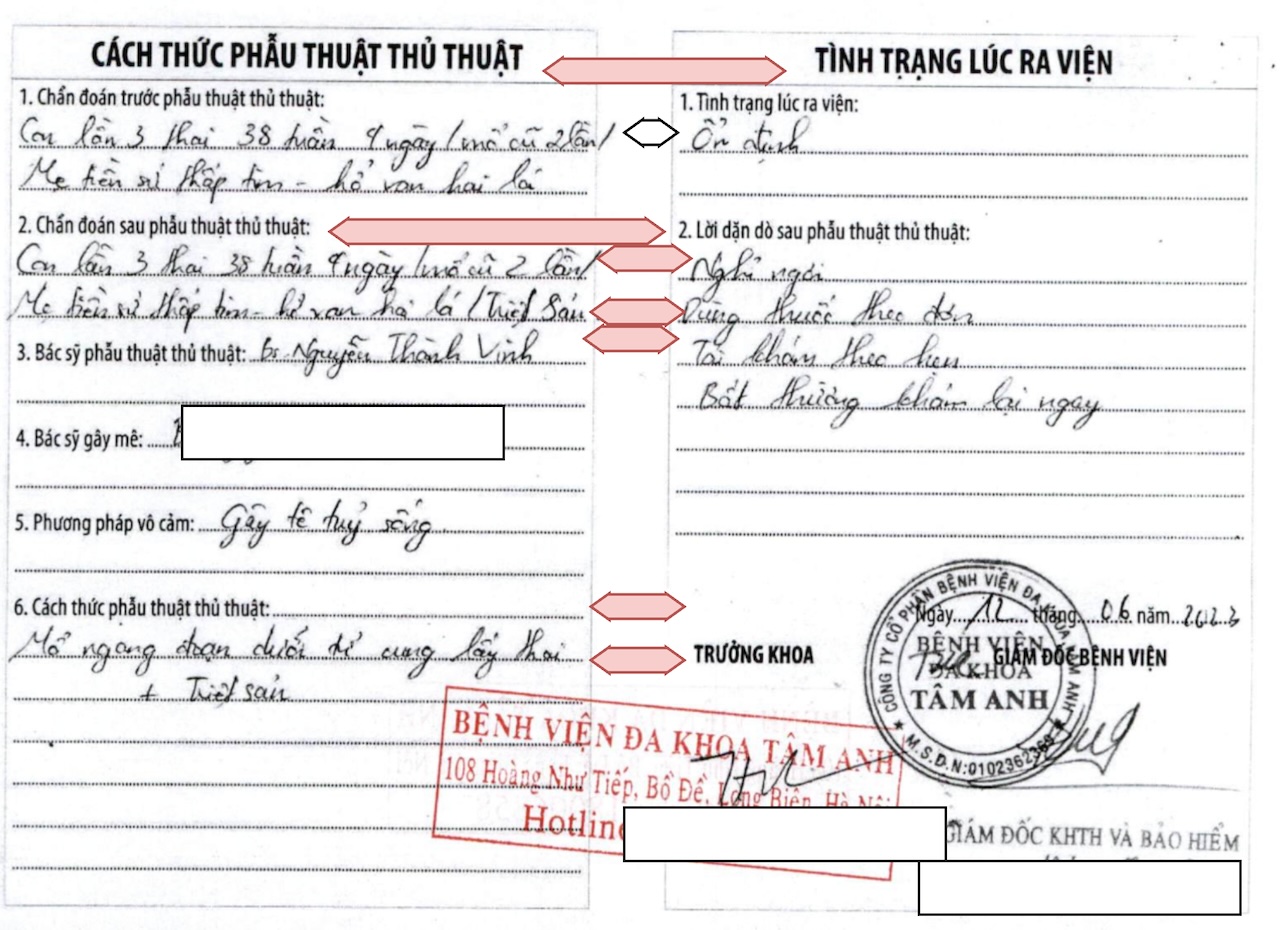 CÁCH THỨC PHẪU THUẬT THỦ THUẬT
1. Chẩn đoán trước phẫu thuật thủ thuật:
Con lần 3 thai 38 tuần 9 ngày / mổ cũ 2 lần /
Mẹ tiền sử thấp tim - hở van hai lá
2. Chẩn đoán sau phẫu thuật thủ thuật:
Con lần 3 thai 38 tuần 9 ngày / mổ cũ 2 lần /
Mẹ tiền sử thấp tim - hở van hai lá / Triệt Sản
3. Bác sỹ phẫu thuật thủ thuật: Bs. Nguyễn Thành Vinh
4. Bác sỹ gây mê:
5. Phương pháp vô cảm: Gây tê tuỷ sống
6. Cách thức phẫu thuật thủ thuật:
Mổ ngang đoạn dưới tử cung lấy thai
+ Triệt sản
TÌNH TRẠNG LÚC RA VIỆN
1. Tình trạng lúc ra viện:
Ổn định
2. Lời dặn dò sau phẫu thuật thủ thuật:
Nghỉ ngơi
Dùng thuốc theo đơn
Tái khám theo hẹn
Bất thường khám lại ngay
Ngày 12 tháng 06 năm 2023
TRƯỞNG KHOA
GIÁM ĐỐC BỆNH VIỆN
CÔNG TY CỔ PHẦN BỆNH VIỆN ĐA KHOA TÂM ANH
BỆNH VIỆN
ĐA KHOA
TÂM ANH
M.S.D.N:0102362369
BỆNH VIỆN ĐA KHOA TÂM ANH
108 Hoàng Như Tiếp, Bồ Đề, Long Biên, Hà Nội
Hotline
GIÁM ĐỐC KHTH VÀ BẢO HIỂM